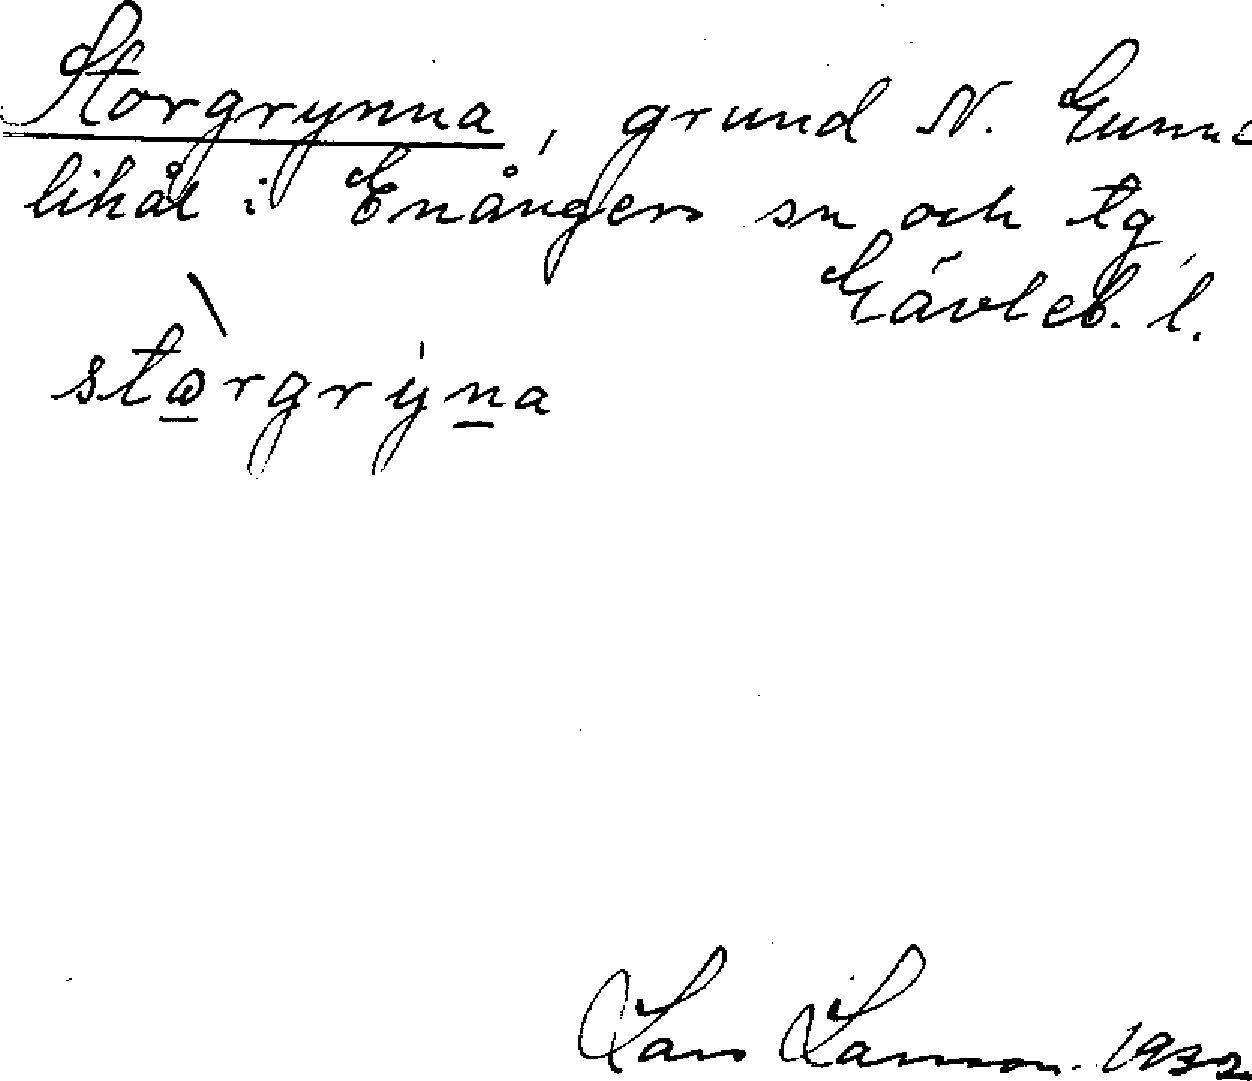 Storgrynna, grund N. Gunnt
lihål i Enångers sn och tg,
Gävleb. l.
stɷrgry̍na
Lars Larsson. 1932